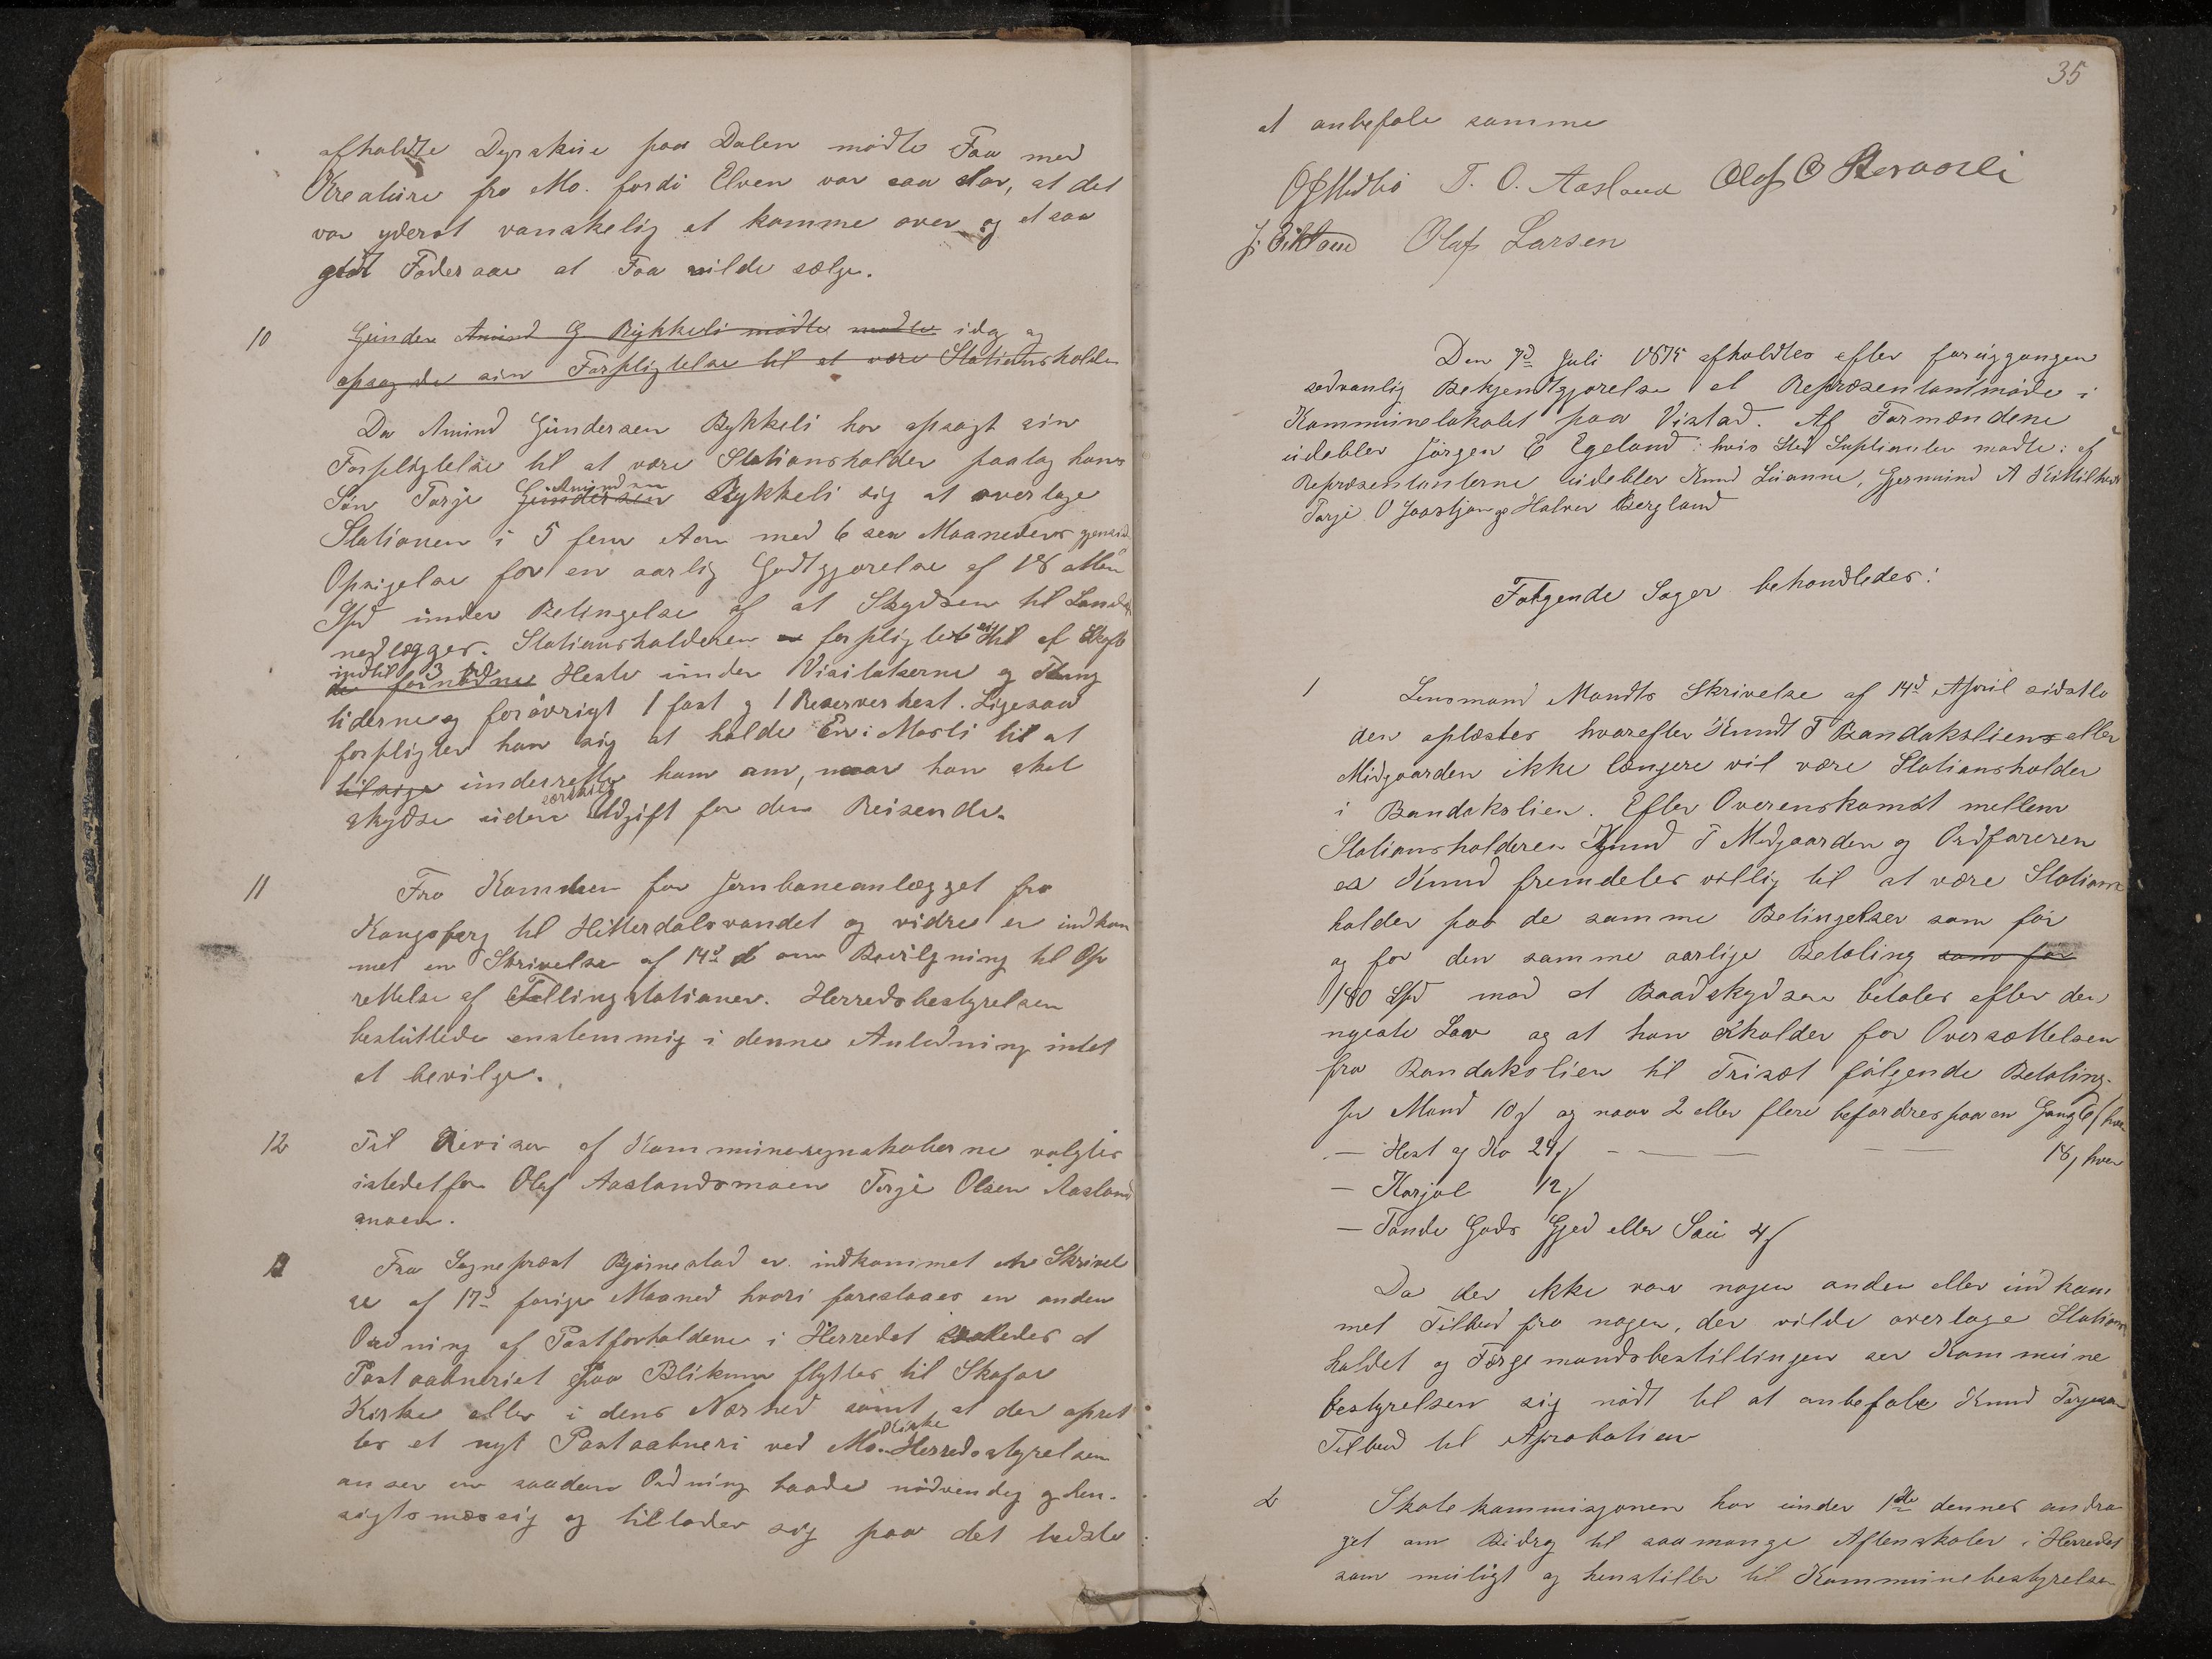 afholdte Dyrskue paa Dalen mødte Faa med
Kreature fra Mo. fordi Elven var saa stor, at det
var yderst vanskelig at komme over og et saa
godt Foderaar at Faa vilde sælge.
10 Gunder Amund G Rykkeli mødte mødte idag og
opsagde sin Forpligtelse til at være Stationsholder
Da Amund Gundersen Bykkeli har opsagt sin
Forpligtelse til at være Stationsholder paatog hans
Søn Tarje Gundersen Amundsen Bykkeli sig at overtage
Stationen i 5 fem Aar med 6 sex Maaneders gjensid
Opsigelse for en aarlig Godtgjørelse af 18 atten
Spd under Betingelse af at Skydsen til Landet
nedlægges. Stationsholderen er forpligtet sig til at skaffe
de fornødne indtil 3 tre Heste under Visitatserne og Thing
tiderne og forøvrigt 1 fast og 1 Reserverhest. Ligesaa
forpligter han sig at holde En i Mosli til at
tilsige underrette ham om, naar han skal
skydse uden særskilt Udgift for den Reisende.
11 Fra Komiteen for Jernbaneanlægget fra
Kongsberg til Hitterdalsvandet og vidre er indkom
met en Skrivelse af 14de d om Bevilgning til Op
rettelse af Tællingstationer. Herredsbestyrelsen
besluttede enstemmig i denne Anledning intet
at bevilge.
12 Til Revisor af Kommuneregnskaberne valgtes
istedetfor Olaf Aaslandsmoen Terje Olsen Aaslands
moen.
13 Fra Sognepræst Bjørnestad er indkommet en Skrivel
se af 17de forige Maaned hvori foreslaaes en anden
Ordning af Postforholdene i Herredet saaledes at
Postaabneriet paa Blikum flyttes til Skafse
Kirke eller i dens Nærhed samt at der opret
tes et nyt Postaabneri ved Mo Kirke Herredsstyrelsen
anser en saadan Ordning baade nødvendig og hen-
sigtsmæssig og tillader sig paa det bedste
35
at anbefale samme
T. O. Aasland Olaf O
Olaf Larsen
Den 7d Juli 1875 afholdtes efter foruggangen
sedvanlig Bekjendtgjørelse et Repræsentantmøde i
Kommunelokalet paa Vistad. Af Formændene
udeblev Jørgen E Egeland: hvis Sted Suplianten mødte: af
Repræsentanterne udeblev Knud Luanne, Gjermund A
Tarje O Jaastjan og Halvor Bergland
Følgende Sager behandledes:
1 Lensmand Mandts Skrivelse af 14d April sidstle
den oplæstes hvorefter Knudt T Bandakslien eller
Midgaarden ikke længere vil være Stationsholder
i Bandakslien. Efter Overenskomst mellem
Stationsholderen Knud T Midgaarden og Ordføreren
er Knud fremdeles villig til at være Stations
holder paa de samme Betingelser som før
og for den samme aarlige Betaling som før
180 Spd mod at Baadskydsen betales efter den
nyeste Lov og at han erholder for Oversættelsen
fra Bandakslien til Triset følgende Betaling.
Per Mand 10 s og naar 2 eller flere befordres paa en Gang 6 s hver
— Hest og Ko 24 s — — — — — 18 s hver
— Karjol 12 s
— Tønde Gods Gjed eller Sau 4 s
Da der ikke var nogen anden eller indkom
met Tilbud fra nogen, der vilde overtage Stations
holdet og Færgemandsbestillingen ser Kommune
bestyrelsen sig nødt til at anbefale Knud Torjesens
Tilbud til Aprobation
2 Skolekommisjonen har under 1ste dennes andra
get om Bidrag til saamange Aftenskoler i Herredet
som muligt og henstiller til Kommunebestyrelsen